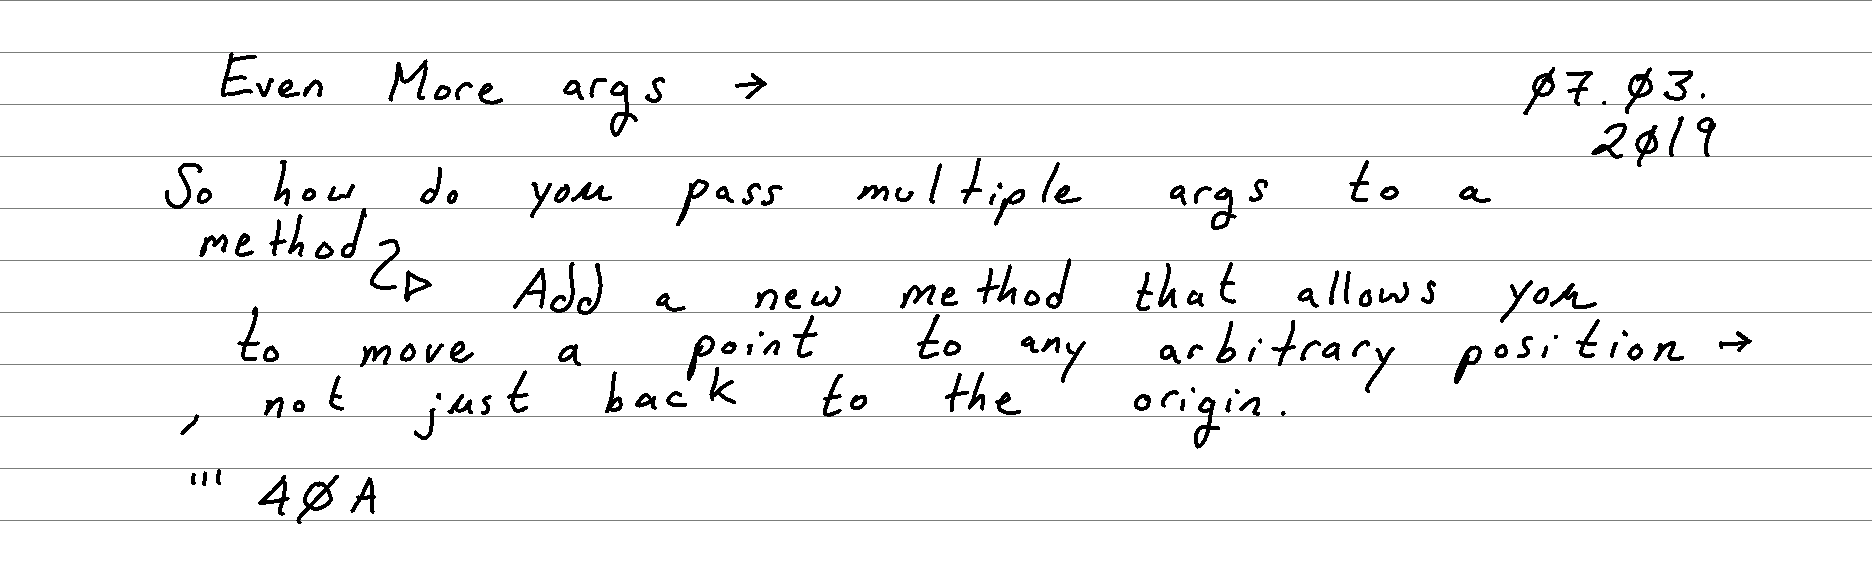 Even More args → Ø7.Ø3.
2Ø19
So how do you pass multiple args to a
method
▷ Add a new method that allows you
to move a point to any arbitrary position →
, not just back to the origin.
''' 4ØA